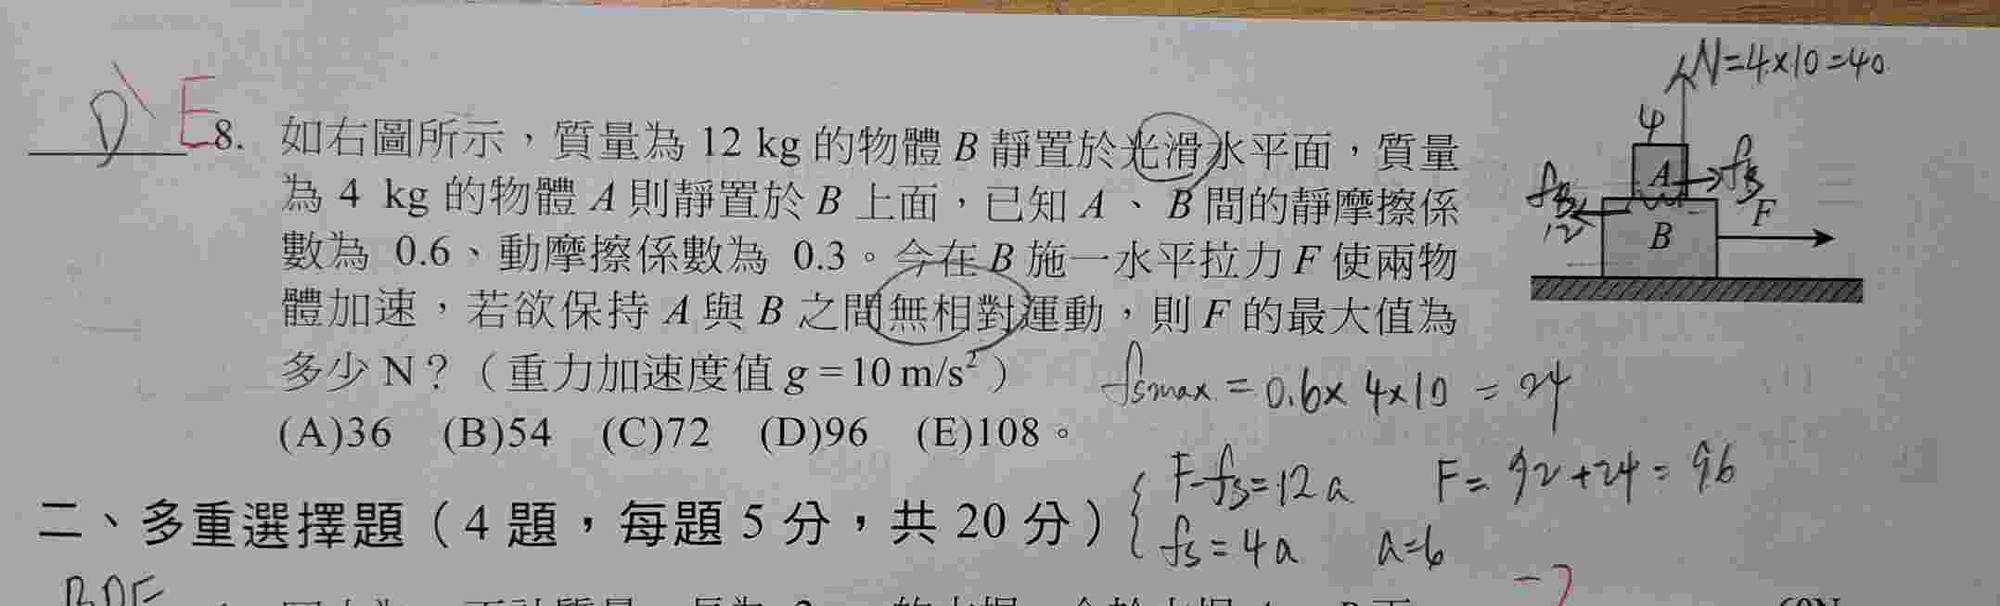 N=4×10=40
D E 8. 如右圖所示，質量為 12 kg 的物體 B 靜置於光滑水平面，質量
為 4 kg 的物體 A 則靜置於 B 上面，已知 A、B 間的靜摩擦係
數為 0.6、動摩擦係數為 0.3。今在 B 施一水平拉力 F 使兩物
體加速，若欲保持 A 與 B 之間無相對運動，則 F 的最大值為
多少 N？（重力加速度值 g = 10 m/s²）
(A)36 (B)54 (C)72 (D)96 (E)108。
4
A fs
fs
12
B F
fsmax = 0.6×4×10 = 24
F-fs=12a F=92+24=96
fs=4a a=6
二、多重選擇題（4 題，每題 5 分，共 20 分）
BDE
-7